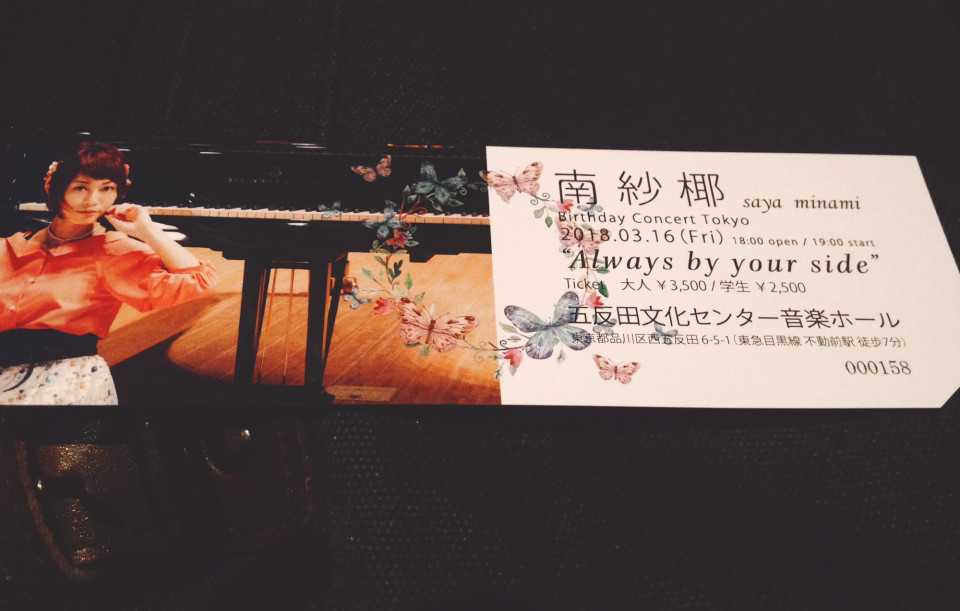 南 紗 椰 saya minami
Birthday Concert Tokyo
2018.03.16(Fri) 18:00 open / 19:00 start
“Always by your side”
Ticket 大人 ¥3,500 / 学生 ¥2,500
五反田文化センター音楽ホール
東京都品川区西五反田 6-5-1(東急目黒線 不動前駅 徒歩7分)
000158